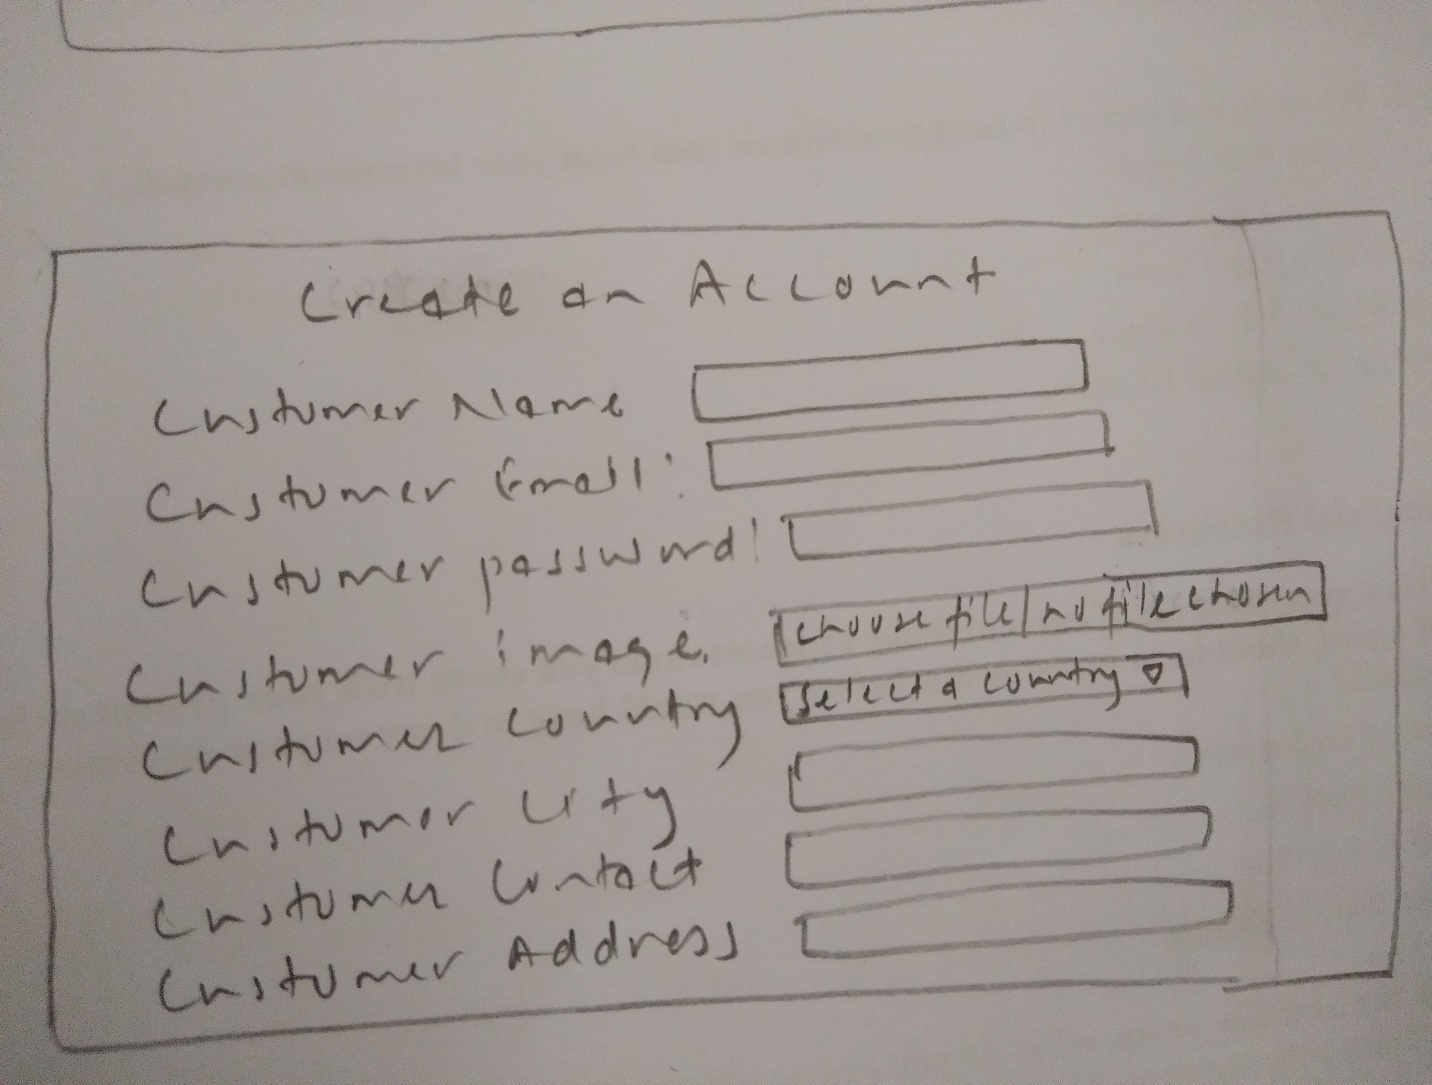 Create an Account
Customer Name
Customer Email:
Customer password:
Customer image. choose file no file chosen
Customer country Select a country
Customer City
Customer Contact
Customer Address